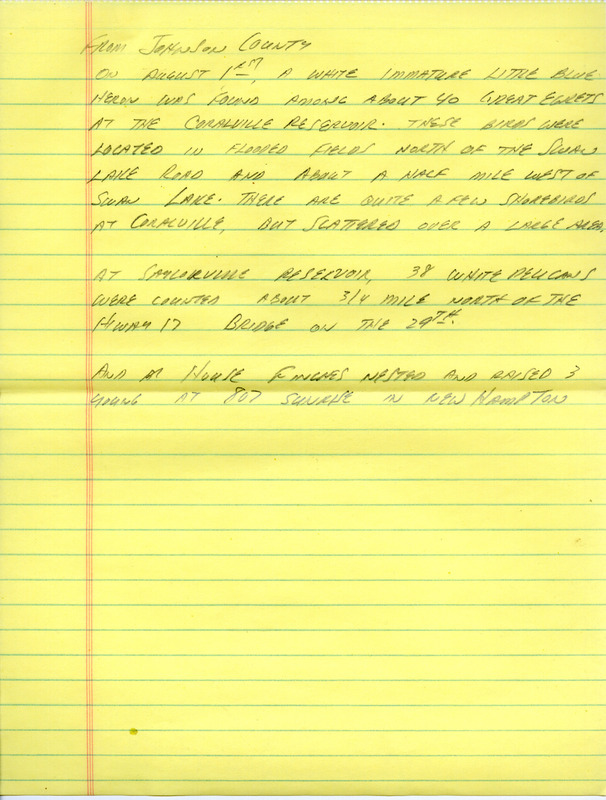 FROM JOHNSON COUNTY
ON AUGUST 1ST, A WHITE IMMATURE LITTLE BLUE
HERON WAS FOUND AMONG ABOUT 40 GREAT EGRETS
AT THE CORALVILLE RESERVOIR. THESE BIRDS WERE
LOCATED IN FLOODED FIELDS NORTH OF THE SWAN
LAKE ROAD AND ABOUT A HALF MILE WEST OF
SWAN LAKE. THERE ARE QUITE A FEW SHOREBIRDS
AT CORALVILLE, BUT SCATTERED OVER A LARGE AREA.
AT SAYLORVILLE RESERVOIR, 38 WHITE PELICANS
WERE COUNTED ABOUT 3/4 MILE NORTH OF THE
HIWAY 17 BRIDGE ON THE 29TH.
AND HOUSE FINCHES NESTED AND RAISED 3
YOUNG AT 807 SUNRISE IN NEW HAMPTON